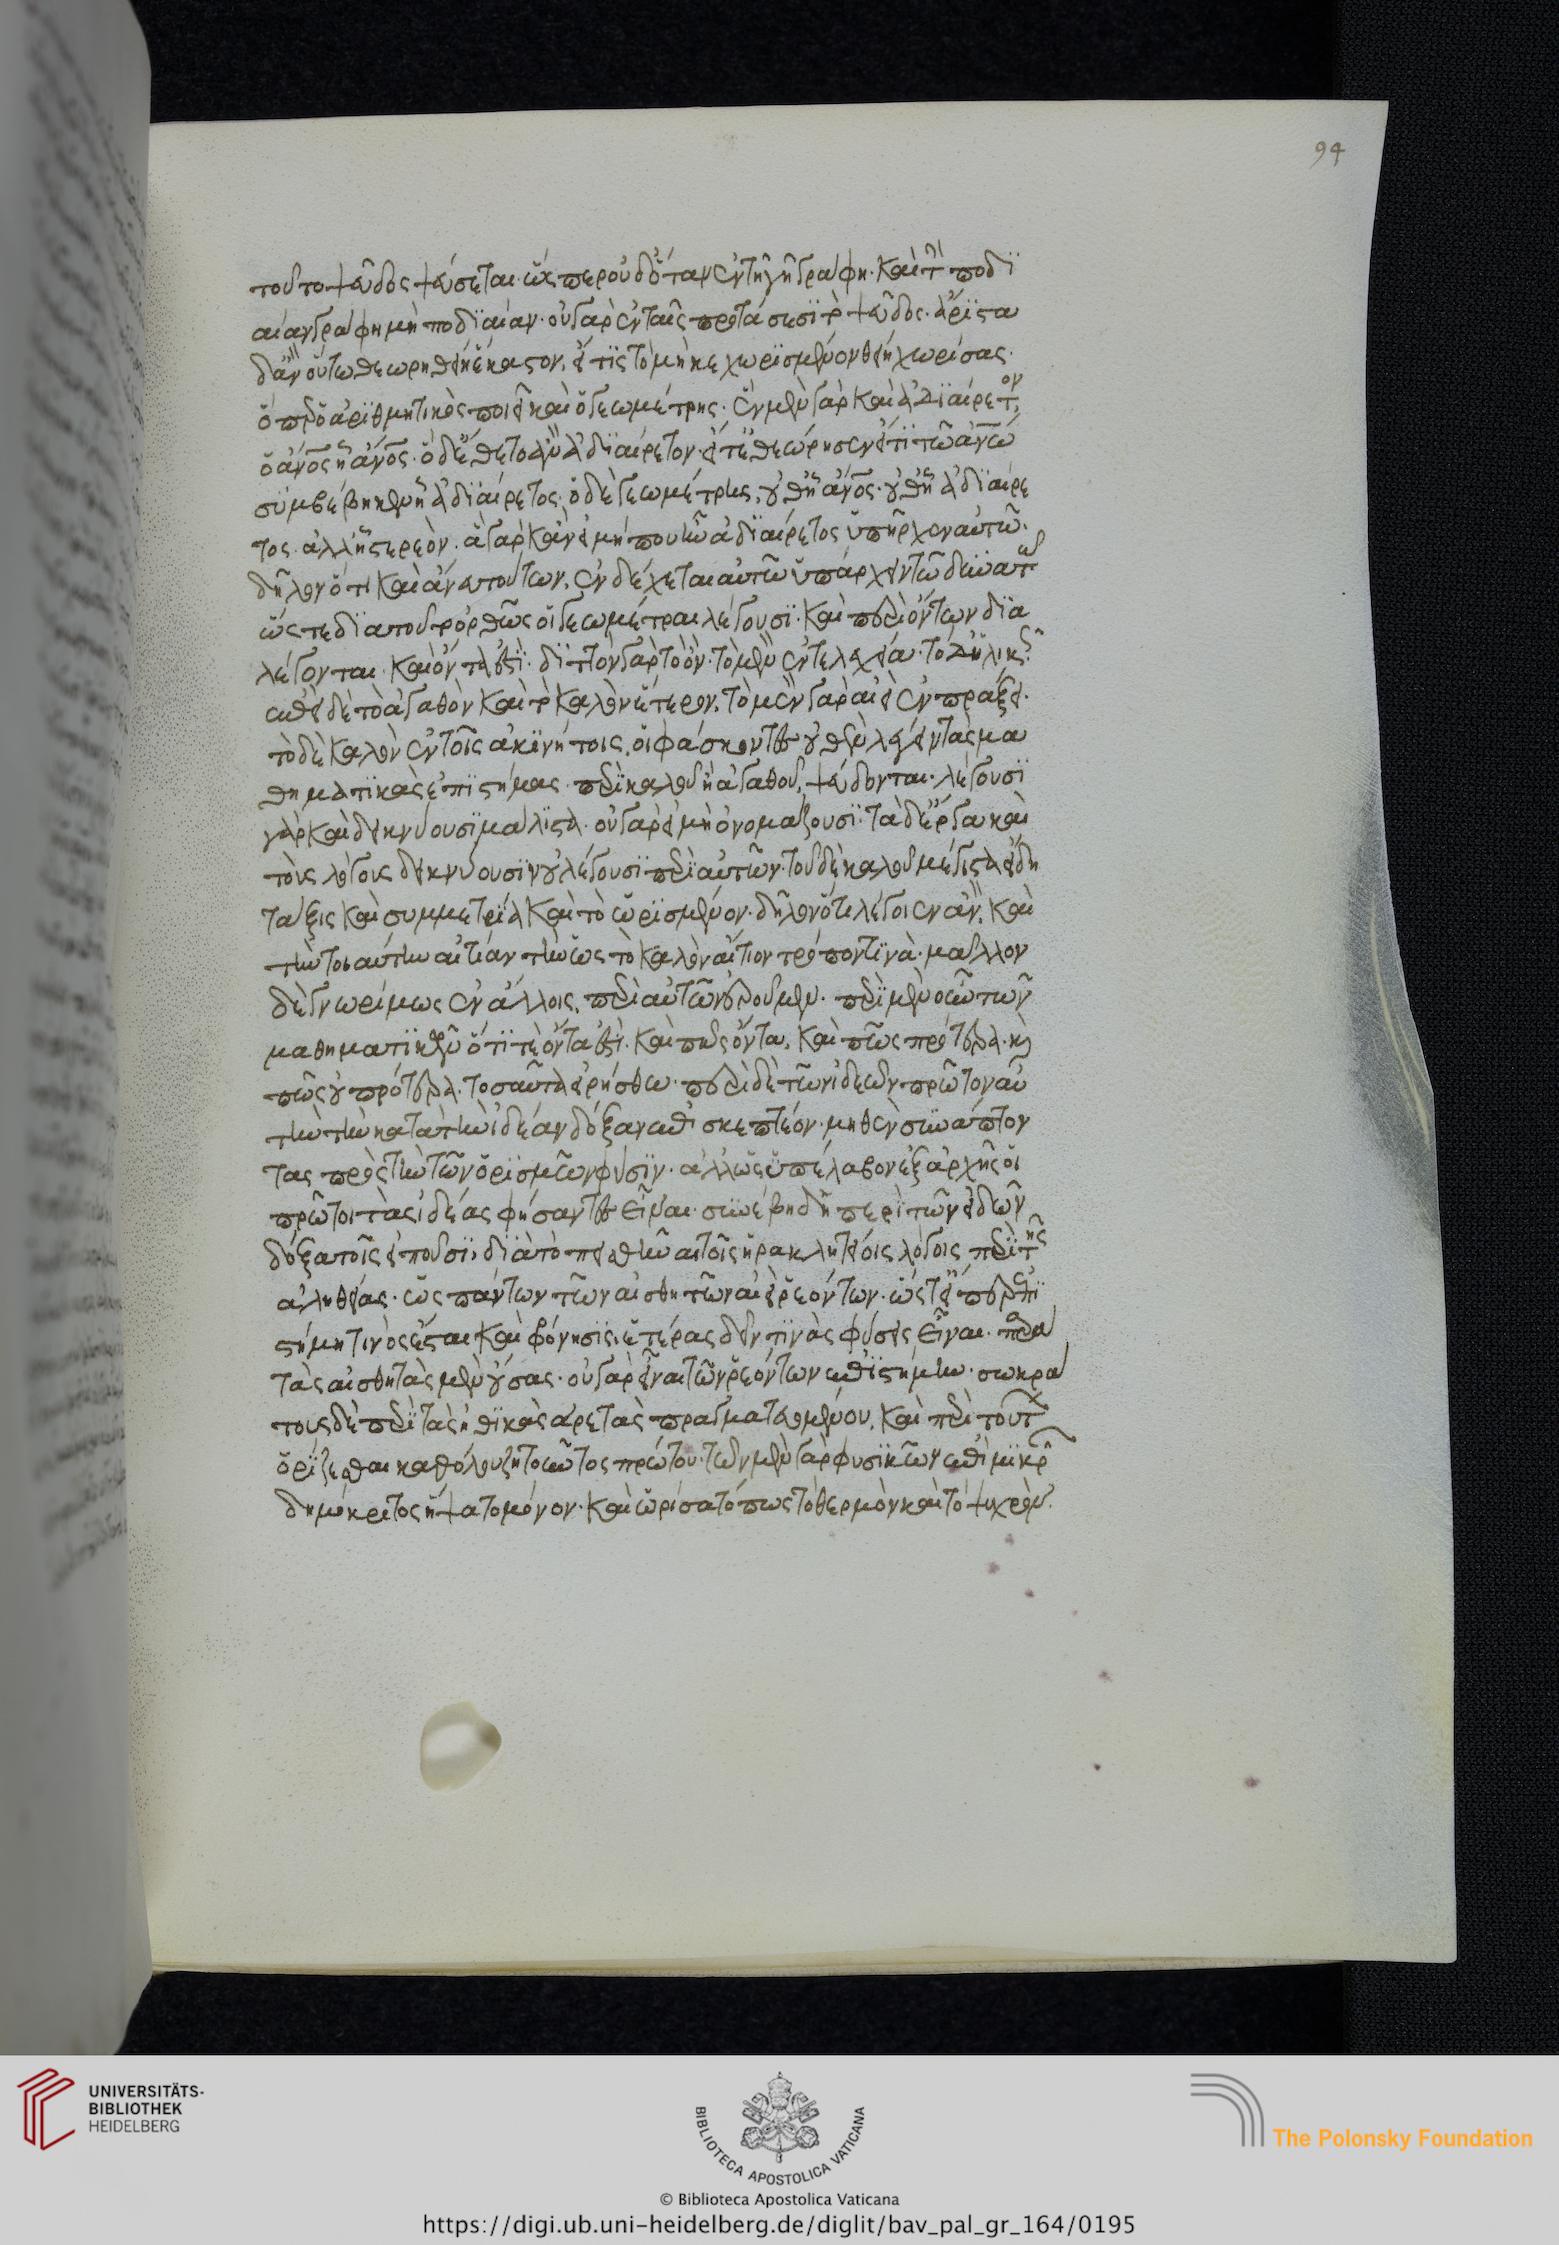 τοῦτο ψεῦδος ψεύσεται. ὥσπερ οὐδ' ὅταν ἐν τῇ γῇ γράφη. καὶ τὴν ποδϊ
αίαν γράφη μὴ ποδϊαίαν. οὐ γὰρ ἐν ταῖς προτάσεσϊ τὸ ψεῦδος. ἄρϊστα
δ' ἂν οὕτω θεωρηθείη ἕκαστον, εἴ τϊς τὸ μὴ κεχωρϊσμένον θείη χωρίσας.
ὅπερ ὁ ἀρϊθμητικὸς ποιεῖ καὶ ὁ γεωμέτρης. ἓν μὲν γὰρ καὶ ἀδϊαίρετον,
ὁ ἄνος ἧ ἄνος. ὁ δ' ἔθετο ἓν ἀδϊαίρετον. εἶτ' ἐθεώρησεν εἴ τϊ τῶ ἀνω
συμβέβηκεν ἧ ἀδϊαίρετος. ὁ δὲ γεωμέτρης, οὔθ' ἧ ἄνος. οὔθ' ἧ ἀδϊαίρε
τος. ἀλλ' ἧ στερεὸν. ἃ γὰρ κἂν εἰ μή που ἦν ἀδϊαίρετος ὑπῆρχεν αὐτῶ.
δῆλον ὅτι καὶ ἄνευ τούτων, ἐνδέχεται αὐτῶ ὑπάρχειν τὸ δυνατὸν
ὥστε δϊὰ τοῦτο ὀρθῶς οἱ γεωμέτραι λέγουσϊ. καὶ περὶ ὄντων δϊα
λέγονται. καὶ ὄντα ἐστϊ. δϊττὸν γὰρ τὸ ὄν. τὸ μὲν ἐντελεχεία. τὸ δ' ὑλικῶς.
ἐπεὶ δὲ τὸ ἀγαθὸν καὶ τὸ καλὸν ἕτερον. τὸ μὲν γὰρ αἰεὶ ἐν πράξει.
τὸ δὲ καλὸν ἐν τοῖς ἀκϊνήτοις. οἱ φάσκοντες οὐθὲν λέγειν τὰς μα
θηματϊκὰς ἐπϊστήμας περὶ καλοῦ ἢ ἀγαθοῦ, ψεύδονται. λέγουσϊ
γὰρ καὶ δεικνύουσϊ μάλϊστα. οὐ γὰρ εἰ μὴ ὀνομάζουσϊ. τὰ δ' ἔργα καὶ
τοὺς λόγους δεικνύουσϊν οὐ λέγουσϊ περὶ αὐτῶν. τοῦ δὲ καλοῦ μέγιστα εἴδη
τάξις καὶ συμμετρία καὶ τὸ ὡρϊσμένον. δῆλον ὅτι λέγοιεν ἂν, καὶ
τὴν τοιαύτην αἰτίαν τὴν ὡς τὸ καλὸν αἴτιον τρόπον τϊνὰ. μᾶλλον
δὲ γνωρίμως ἐν ἄλλοις, περὶ αὐτῶν ἐροῦμεν. περὶ μὲν οὖν τῶν
μαθηματϊκῶν ὅτϊ τε ὄντα ἐστὶ. καὶ πῶς ὄντα, καὶ πῶς πρότερα. καὶ
πῶς οὐ πρότερα. τοσαῦτα εἰρήσθω. περὶ δὲ τῶν ἰδεῶν πρῶτον αὐ
τὴν τὴν κατὰ τὴν ἰδέαν δόξαν ἐπισκεπτέον. μηθὲν συνάπτον
τας πρὸς τὴν τῶν ὁρϊσμῶν φύσϊν. ἀλλ' ὡς ὑπέλαβον ἐξ ἀρχῆς οἱ
πρῶτοι τὰς ἰδέας φήσαντες εἶναι. συνέβη δ' ἡ περὶ τῶν εἰδῶν
δόξα τοῖς εἰποῦσϊ, δϊὰ τὸ πεισθῆναι τοῖς ἡρακλητείοις λόγοις περὶ τῆς
ἀληθείας. ὡς πάντων τῶν αἰσθητῶν αἰεὶ ῥεόντων. ὥστ' εἴπερ ἐπϊ
στήμη τινὸς ἔσται καὶ φρόνησϊς, ἑτέρας δεῖν τϊνὰς φύσεις εἶναι. παρὰ
τὰς αἰσθητὰς μενούσας. οὐ γὰρ εἶναι τῶν ῥεόντων ἐπϊστήμην. σωκρά
τους δὲ περὶ τὰς ἠθϊκὰς ἀρετὰς πραγματευομένου, καὶ περὶ τούτων
ὁρίζεσθαι καθόλου ζητοῦντος πρώτου. τῶν μὲν γὰρ φυσϊκῶν ἐπὶ μϊκρὸν
δημόκριτος ἥψατο μόνον. καὶ ὡρίσατό πως τὸ θερμὸν καὶ τὸ ψυχρόν.
94
UNIVERSITÄTS-
BIBLIOTHEK
HEIDELBERG
BIBLIOTECA APOSTOLICA VATICANA
The Polonsky Foundation
© Biblioteca Apostolica Vaticana
https://digi.ub.uni-heidelberg.de/diglit/bav_pal_gr_164/0195